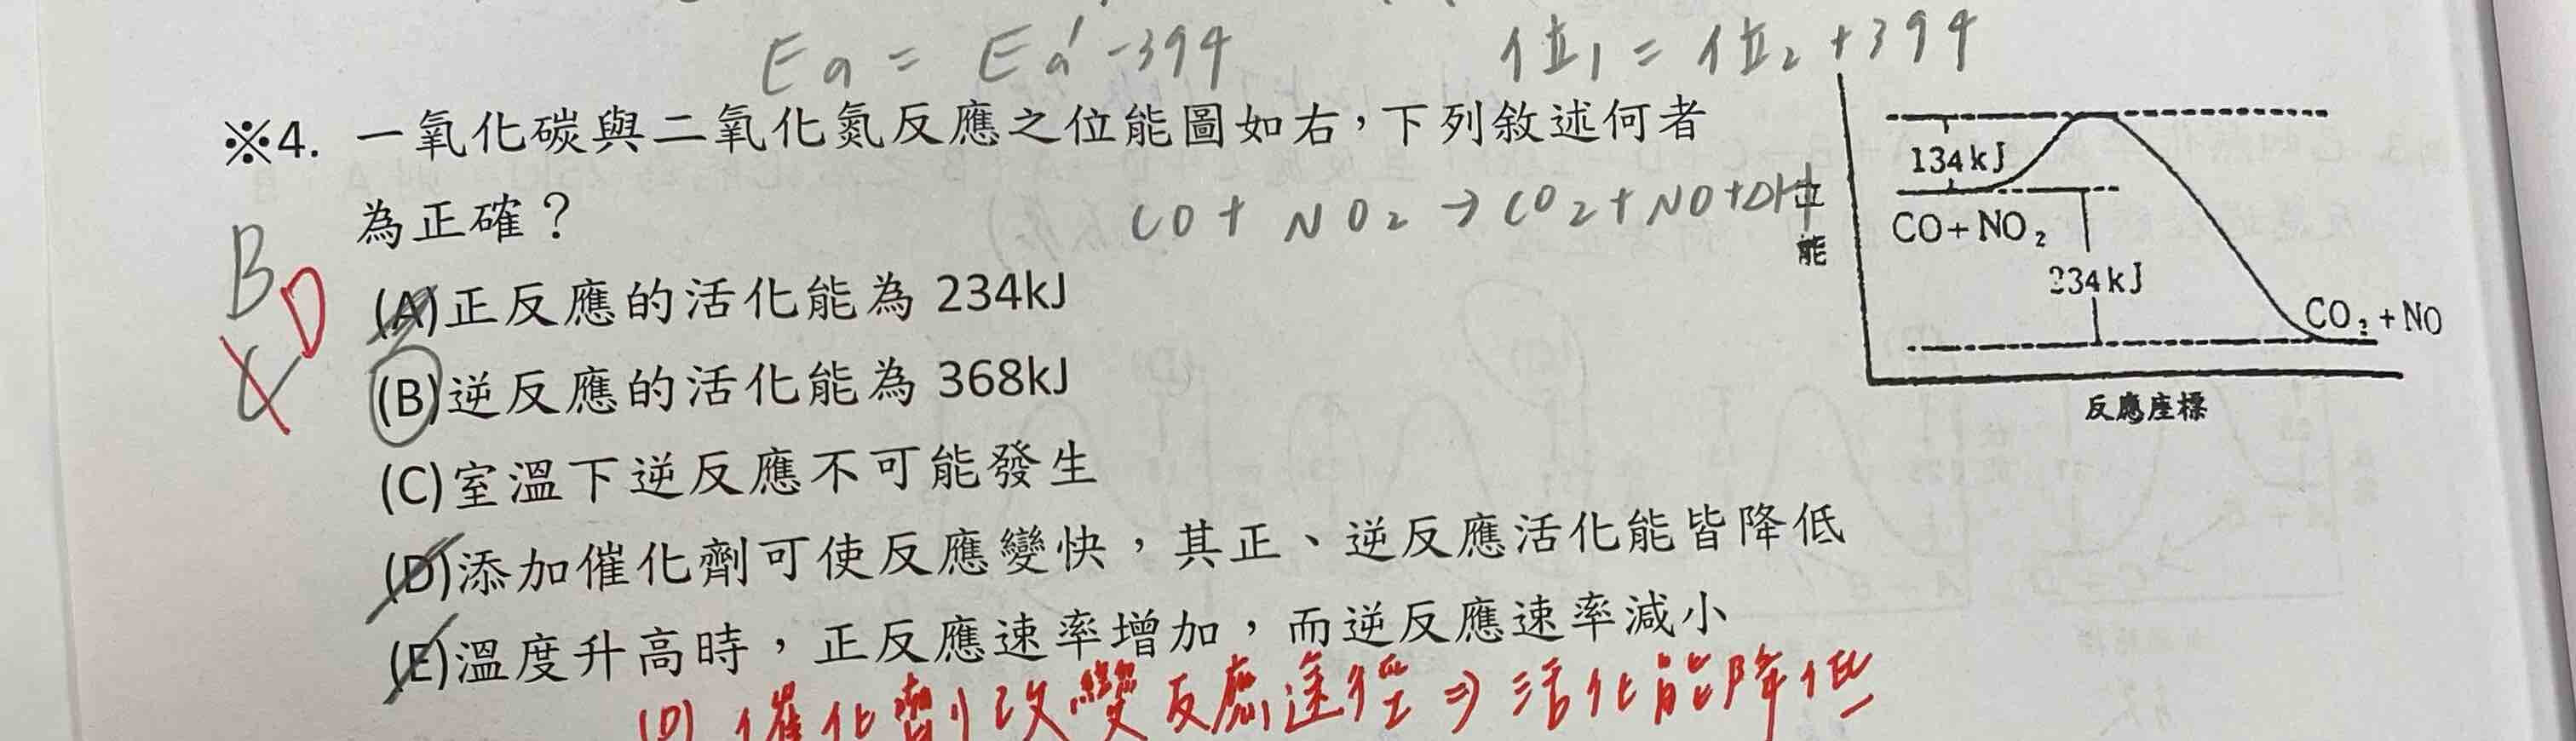 Ea = Ea' -394
位1 = 位2 +394
※4. 一氧化碳與二氧化氮反應之位能圖如右,下列敘述何者
為正確?
CO + NO2 → CO2 + NO + ΔH
B D
C
(A)正反應的活化能為 234kJ
(B)逆反應的活化能為 368kJ
(C)室溫下逆反應不可能發生
(D)添加催化劑可使反應變快,其正、逆反應活化能皆降低
(E)溫度升高時,正反應速率增加,而逆反應速率減小
(D) 催化劑改變反應途徑 ⇒ 活化能降低
位能
134kJ
CO+NO2
234kJ
CO2+NO
反應座標